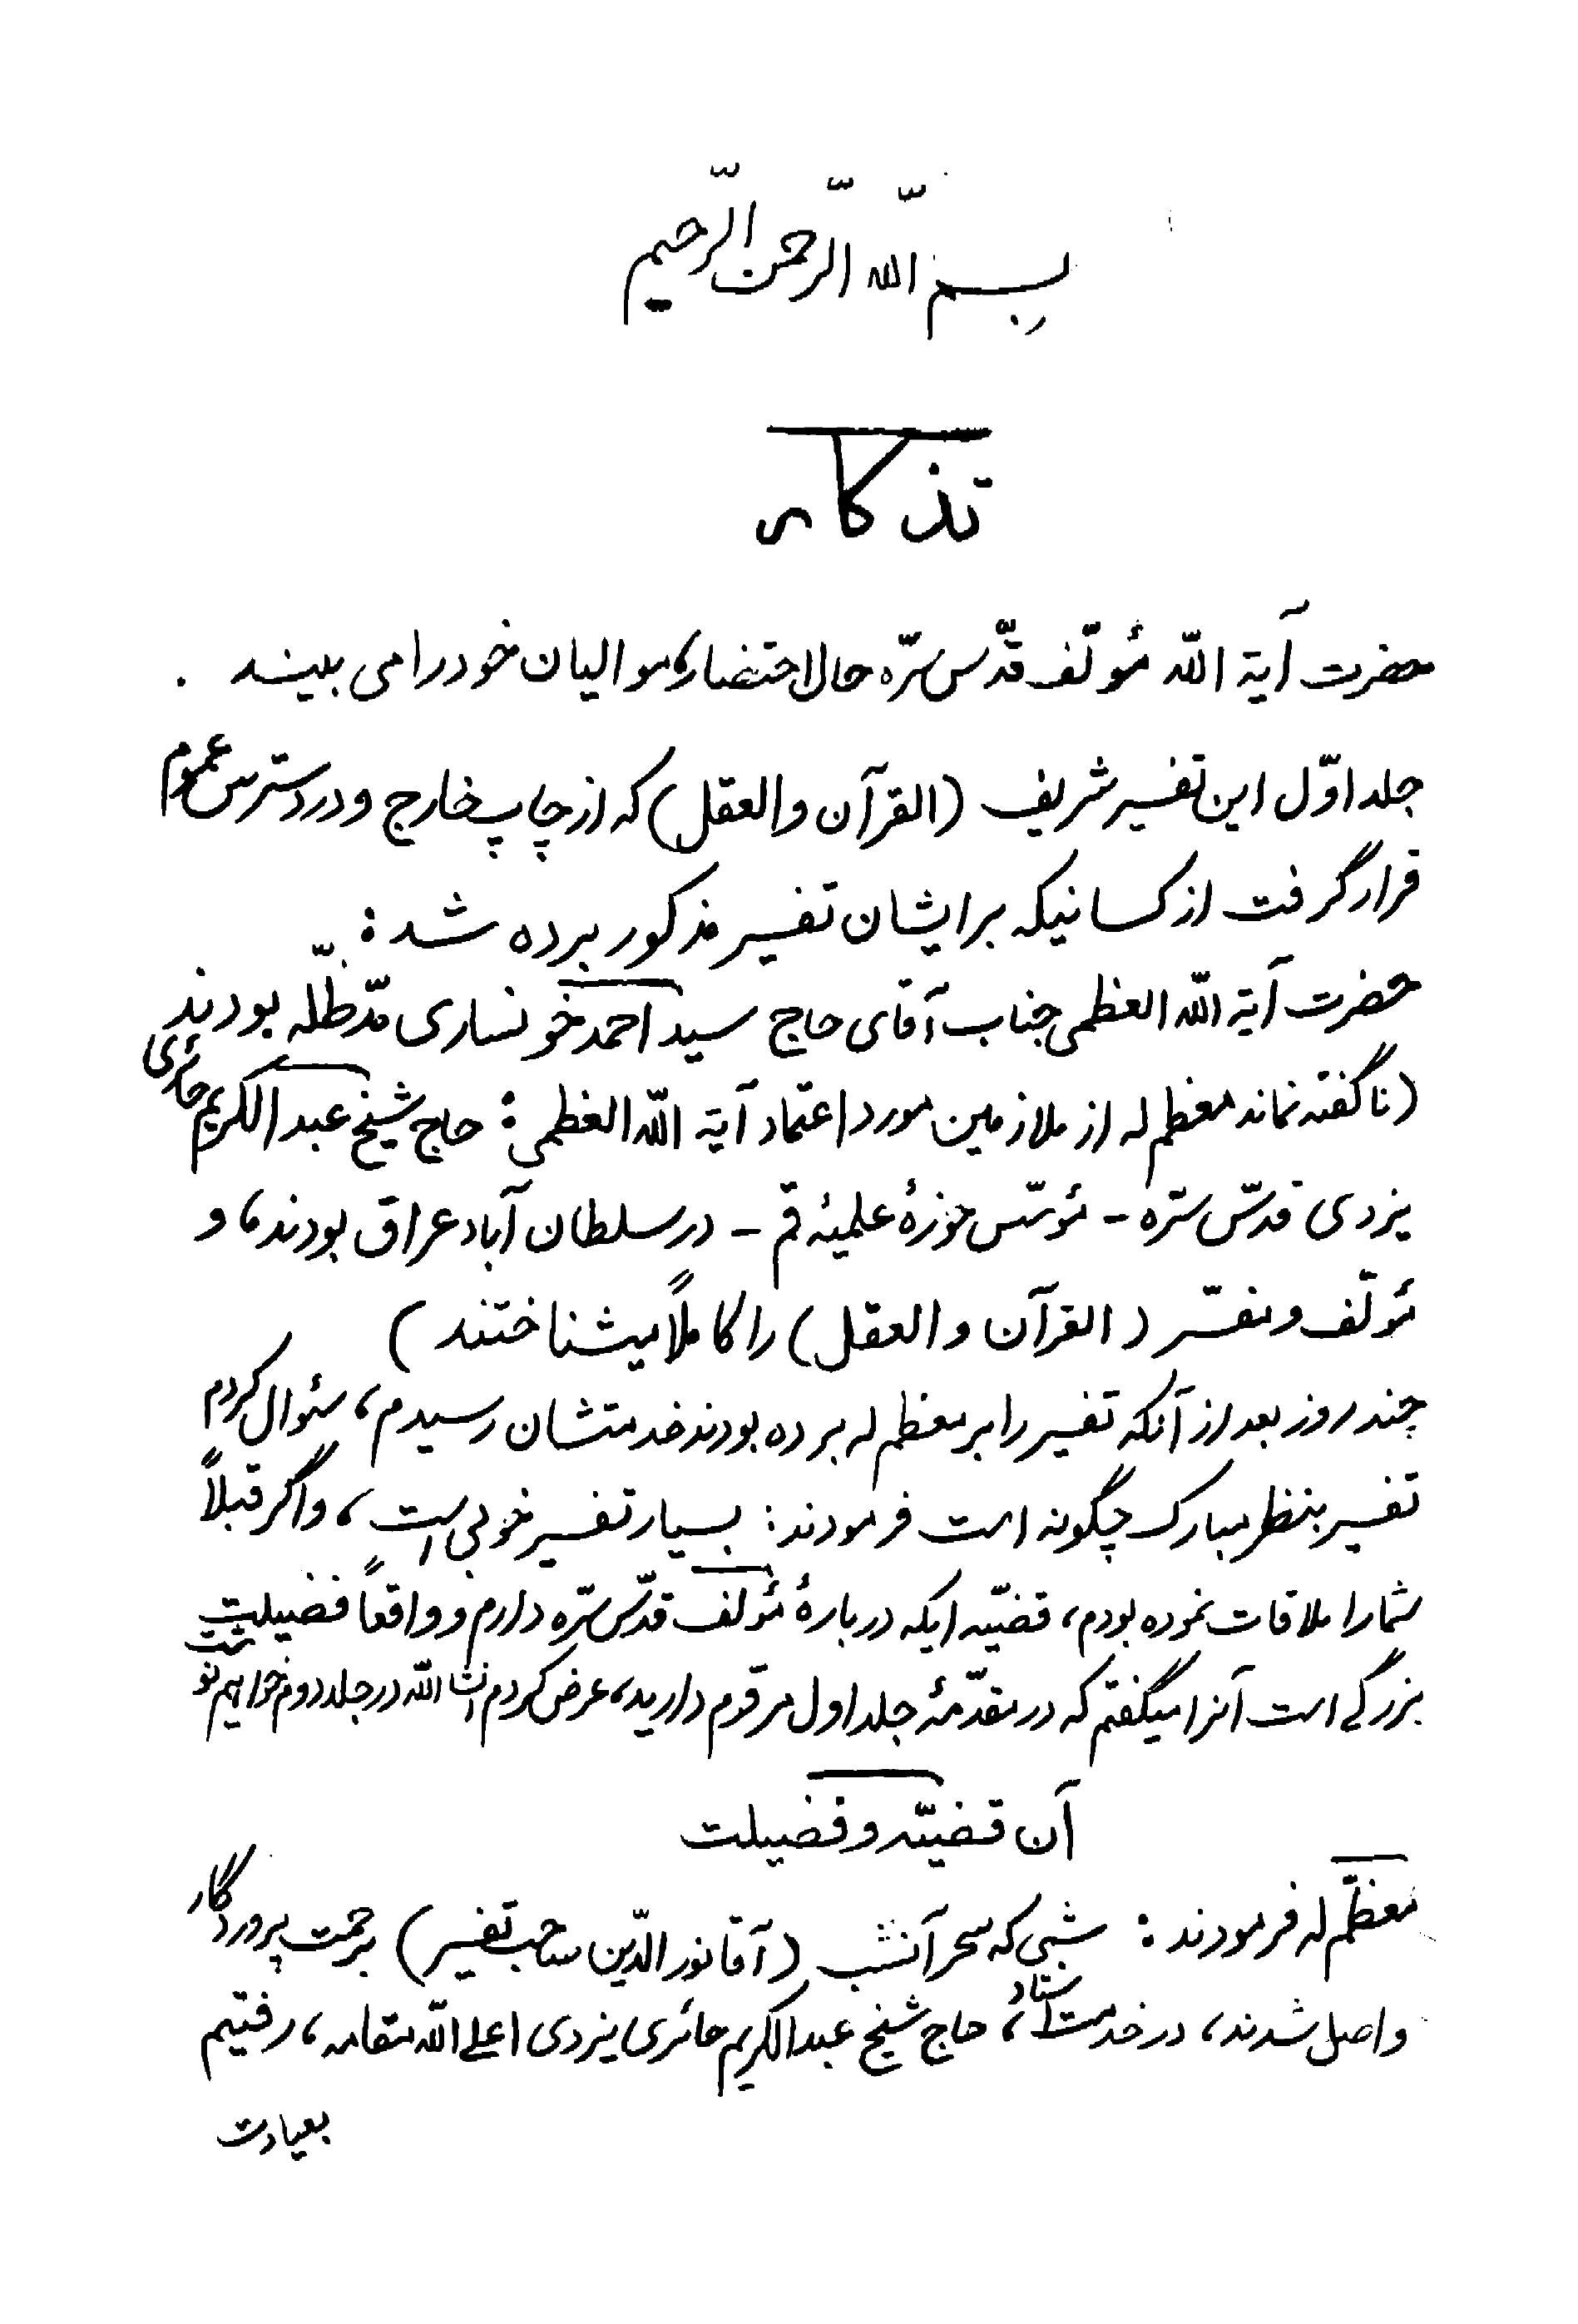 بسم الله الرّحمن الرّحیم
تذکار
حضرت آیة اللّه مؤلّف قدّس سّره حال احتضار، موالیان خود را می بیند .
جلد اوّل این تفسیر شریف (القرآن والعقل) که از چاپ خارج و در دسترس عموم
قرار گرفت از کسانیکه برایشان تفسیر مذکور برده شد :
حضرت آیة اللّه العظمی جناب آقای حاج سید احمد خونساری مدّظلّه بودند
(ناگفته نماند معظم له از ملازمین مورد اعتماد آیة اللّه العظمی : حاج شیخ عبدالکریم حائری
یزدی قدّس سّره - مؤسّس حوزهٔ علمیهٔ قم - در سلطان آباد عراق بودند، و
مؤلّف و مفسّر (القرآن والعقل) را کاملاً میشناختند)
چند روز بعد از آنکه تفسیر را بر معظم له برده بودند خدمتشان رسیدم، سئوال کردم
تفسیر بنظر مبارک چگونه است فرمودند : بسیار تفسیر خوبی است، و اگر قبلاً
شما را ملاقات نموده بودم، قضیّه ایکه دربارهٔ مؤلف قدّس سّره دارم و واقعاً فضیلت
بزرگی است آنرا میگفتم که در مقدّمهٔ جلد اول مرقوم دارید، عرض کردم انشا اللّه در جلد دوم خواهیم نوشت
آن قضیّه و فضیلت
معظّم له فرمودند : شبی که سحر آنشب (آقا نور الدّین صاحب تفسیر) برحمت پروردگار
واصل شدند، در خدمت استاد، حاج شیخ عبدالکریم حائری یزدی اعلی اللّه مقامه، رفتیم
بعیادت